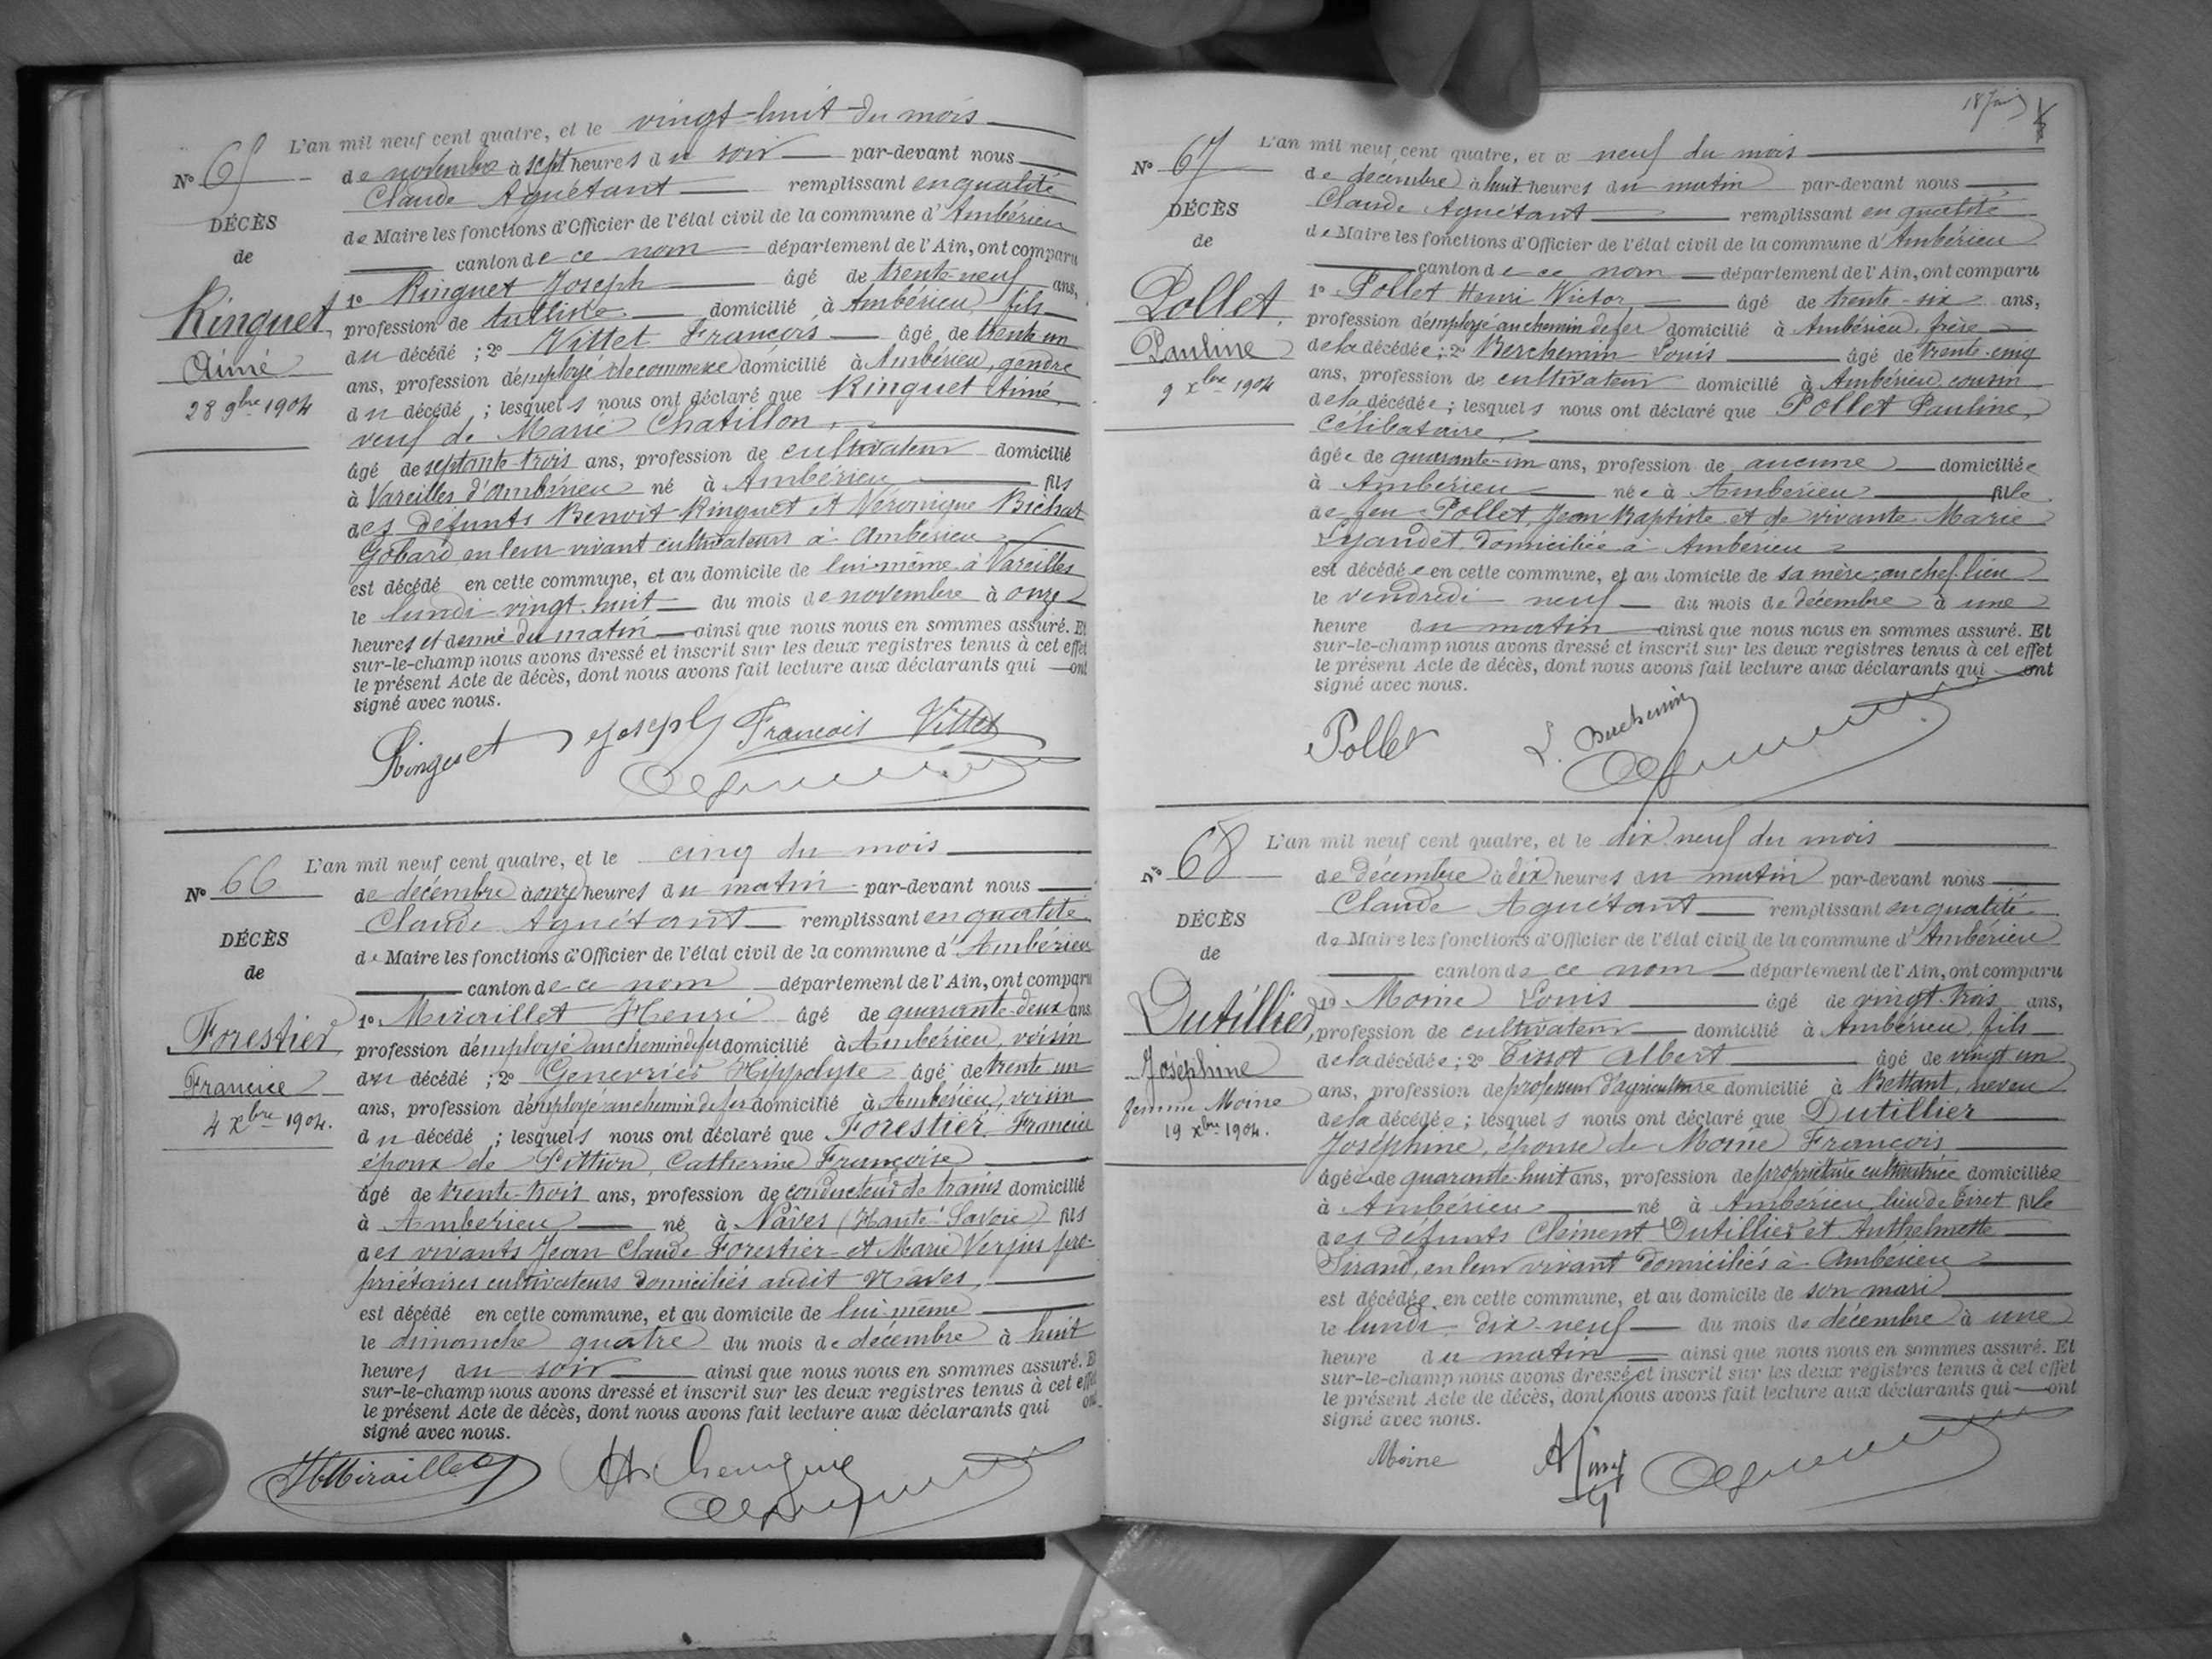 L'an mil neuf cent quatre, et le vingt-huit du mois
No 65
de novembre à sept heures du soir par-devant nous
Claude Aguétant remplissant en qualité
DÉCÈS
de Maire les fonctions d'Officier de l'état civil de la commune d'Ambérieu
de
canton de ce nom département de l'Ain, ont comparu
Ringuet
1o Ringuet Joseph âgé de trente-neuf ans,
profession de tulliste domicilié à Ambérieu, fils
Aimé
du décédé ; 2o Vittet François âgé de trente un
28 9bre 1904
ans, profession d'employé de commerce domicilié à Ambérieu, gendre
du décédé ; lesquels nous ont déclaré que Ringuet Aimé,
veuf de Marie Chatillon,
âgé de septante-trois ans, profession de cultivateur domicilié
à Vareilles d'Ambérieu né à Ambérieu fils
des défunts Benoit Ringuet et Véronique Bichat
Gobard en leur vivant cultivateurs à Ambérieu
est décédé en cette commune, et au domicile de lui-même à Vareilles
le lundi vingt-huit du mois de novembre à onze
heures et demie du matin ainsi que nous nous en sommes assuré. Et
sur-le-champ nous avons dressé et inscrit sur les deux registres tenus à cet effet
le présent Acte de décès, dont nous avons fait lecture aux déclarants qui ont
signé avec nous.
Ringuet Joseph François Vittet
L'an mil neuf cent quatre, et le cinq du mois
No 66
de décembre à onze heures du matin par-devant nous
Claude Aguétant remplissant en qualité
DÉCÈS
de Maire les fonctions d'Officier de l'état civil de la commune d'Ambérieu
de
canton de ce nom département de l'Ain, ont comparu
Forestier
1o Miraillet Henri âgé de quarante-deux ans
profession d'employé au chemin de fer domicilié à Ambérieu, voisin
Francice
du décédé ; 2o Genevrier Hippolyte âgé de trente un
4 Xbre 1904.
ans, profession d'employé au chemin de fer domicilié à Ambérieu, voisin
du décédé ; lesquels nous ont déclaré que Forestier Francice
époux de Pittion, Catherine Françoise
âgé de trente-trois ans, profession de conducteur de trains domicilié
à Ambérieu né à Nâves (Haute-Savoie) fils
des vivants Jean Claude Forestier et Marie Verjus pro-
priétaires cultivateurs domiciliés audit Nâves,
est décédé en cette commune, et au domicile de lui-même
le dimanche quatre du mois de décembre à huit
heures du soir ainsi que nous nous en sommes assuré. Et
sur-le-champ nous avons dressé et inscrit sur les deux registres tenus à cet effet
le présent Acte de décès, dont nous avons fait lecture aux déclarants qui ont
signé avec nous.
H Miraillet
L'an mil neuf cent quatre, et le neuf du mois
No 67
de décembre à huit heures du matin par-devant nous
Claude Aguétant remplissant en qualité
DÉCÈS
de Maire les fonctions d'Officier de l'état civil de la commune d'Ambérieu
de
canton de ce nom département de l'Ain, ont comparu
Pollet
1o Pollet Henri Victor âgé de trente-six ans,
profession d'employé au chemin de fer domicilié à Ambérieu, frère
Pauline
de la décédée ; 2o Berchemin Louis âgé de trente-cinq
9 Xbre 1904
ans, profession de cultivateur domicilié à Ambérieu, cousin
de la décédée ; lesquels nous ont déclaré que Pollet Pauline,
célibataire,
âgée de quarante-un ans, profession de aucune domiciliée
à Ambérieu née à Ambérieu fille
de feu Pollet, Jean Baptiste et de vivante Marie
Lyaudet, domiciliée à Ambérieu
est décédée en cette commune, et au domicile de sa mère, au chef-lieu
le vendredi neuf du mois de décembre à une
heure du matin ainsi que nous nous en sommes assuré. Et
sur-le-champ nous avons dressé et inscrit sur les deux registres tenus à cet effet
le présent Acte de décès, dont nous avons fait lecture aux déclarants qui ont
signé avec nous.
Pollet L. Berchemin
L'an mil neuf cent quatre, et le dix-neuf du mois
No 68
de décembre à dix heures du matin par-devant nous
Claude Aguétant remplissant en qualité
DÉCÈS
de Maire les fonctions d'Officier de l'état civil de la commune d'Ambérieu
de
canton de ce nom département de l'Ain, ont comparu
Dutillier,
1o Moine Louis âgé de vingt-trois ans,
profession de cultivateur domicilié à Ambérieu, fils
Joséphine
de la décédée ; 2o Tissot Albert âgé de vingt un
femme Moine
ans, profession de professeur d'agriculture domicilié à Bettant, neveu
19 Xbre 1904.
de la décédée ; lesquels nous ont déclaré que Dutillier
Joséphine, épouse de Moine François
âgée de quarante-huit ans, profession de propriétaire cultivatrice domiciliée
à Ambérieu né à Ambérieu, lieu de Tiret fille
des défunts Clément Dutillier et Anthelmette
Sirand, en leur vivant domiciliés à Ambérieu
est décédée en cette commune, et au domicile de son mari
le lundi dix-neuf du mois de décembre à une
heure du matin ainsi que nous nous en sommes assuré. Et
sur-le-champ nous avons dressé et inscrit sur les deux registres tenus à cet effet
le présent Acte de décès, dont nous avons fait lecture aux déclarants qui ont
signé avec nous.
Moine